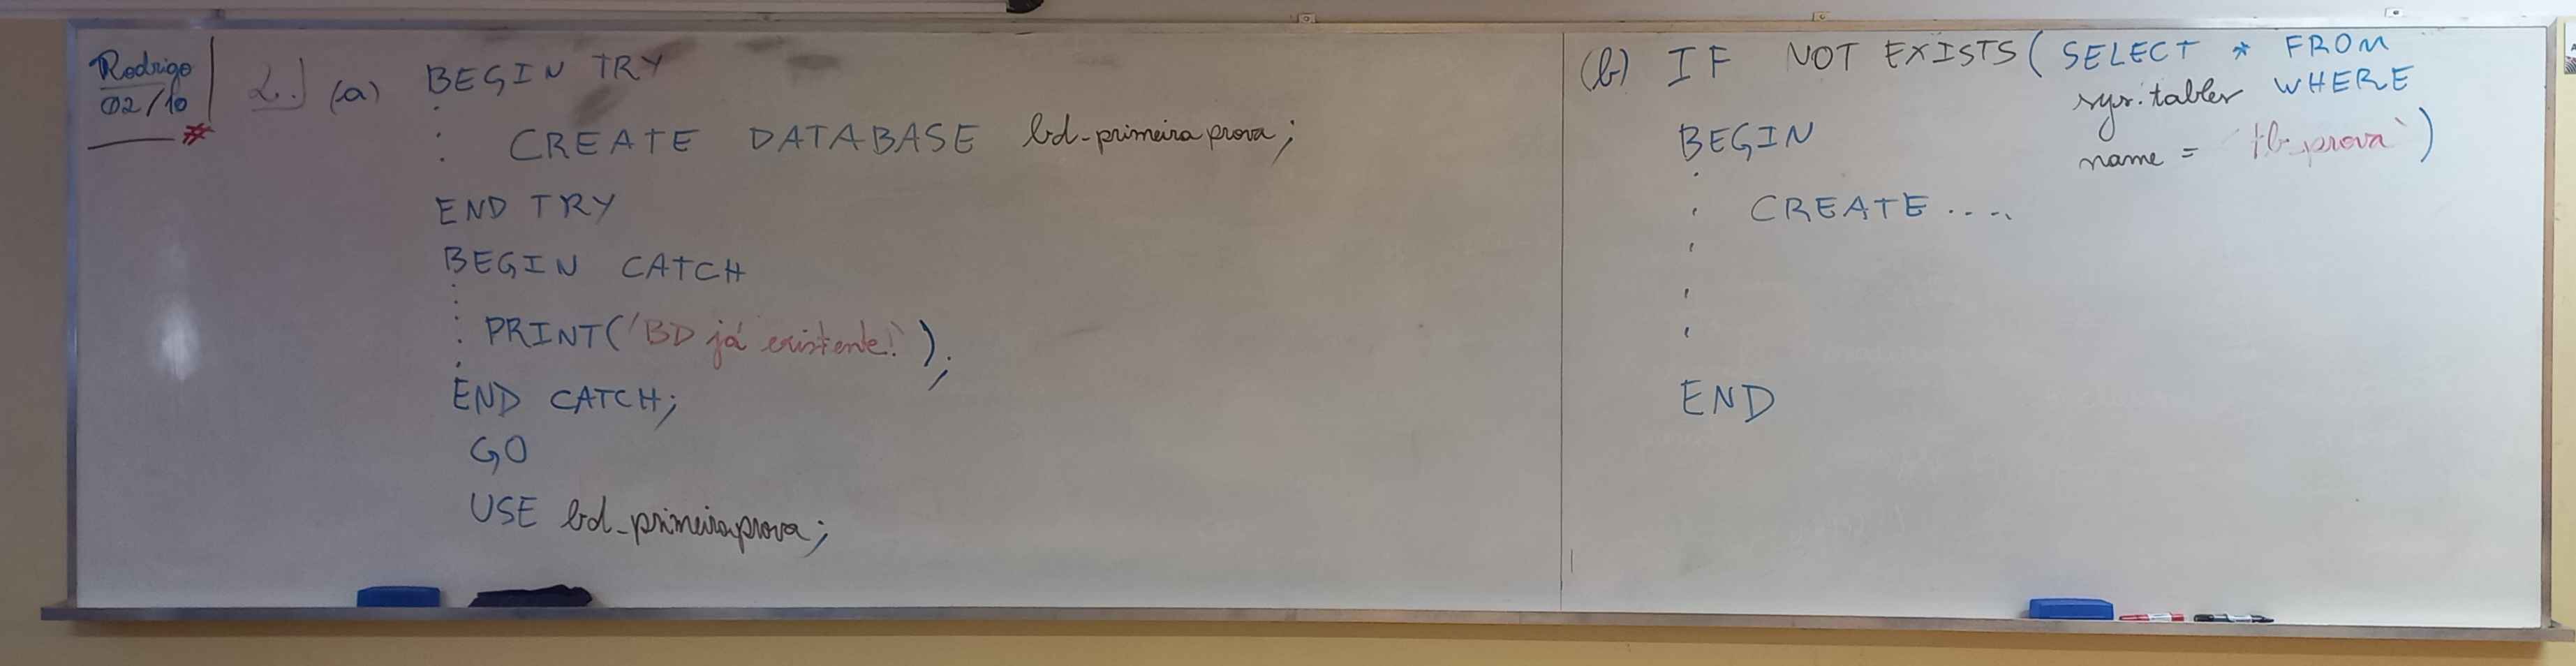 Rodrigo
02/10
#
2.) (a) BEGIN TRY
CREATE DATABASE bd_primeiraprova;
END TRY
BEGIN CATCH
PRINT('BD já existente!');
END CATCH;
GO
USE bd_primeiraprova;
(b) IF NOT EXISTS( SELECT * FROM
sys.tables WHERE
name = 'tb_prova')
BEGIN
CREATE ....
END